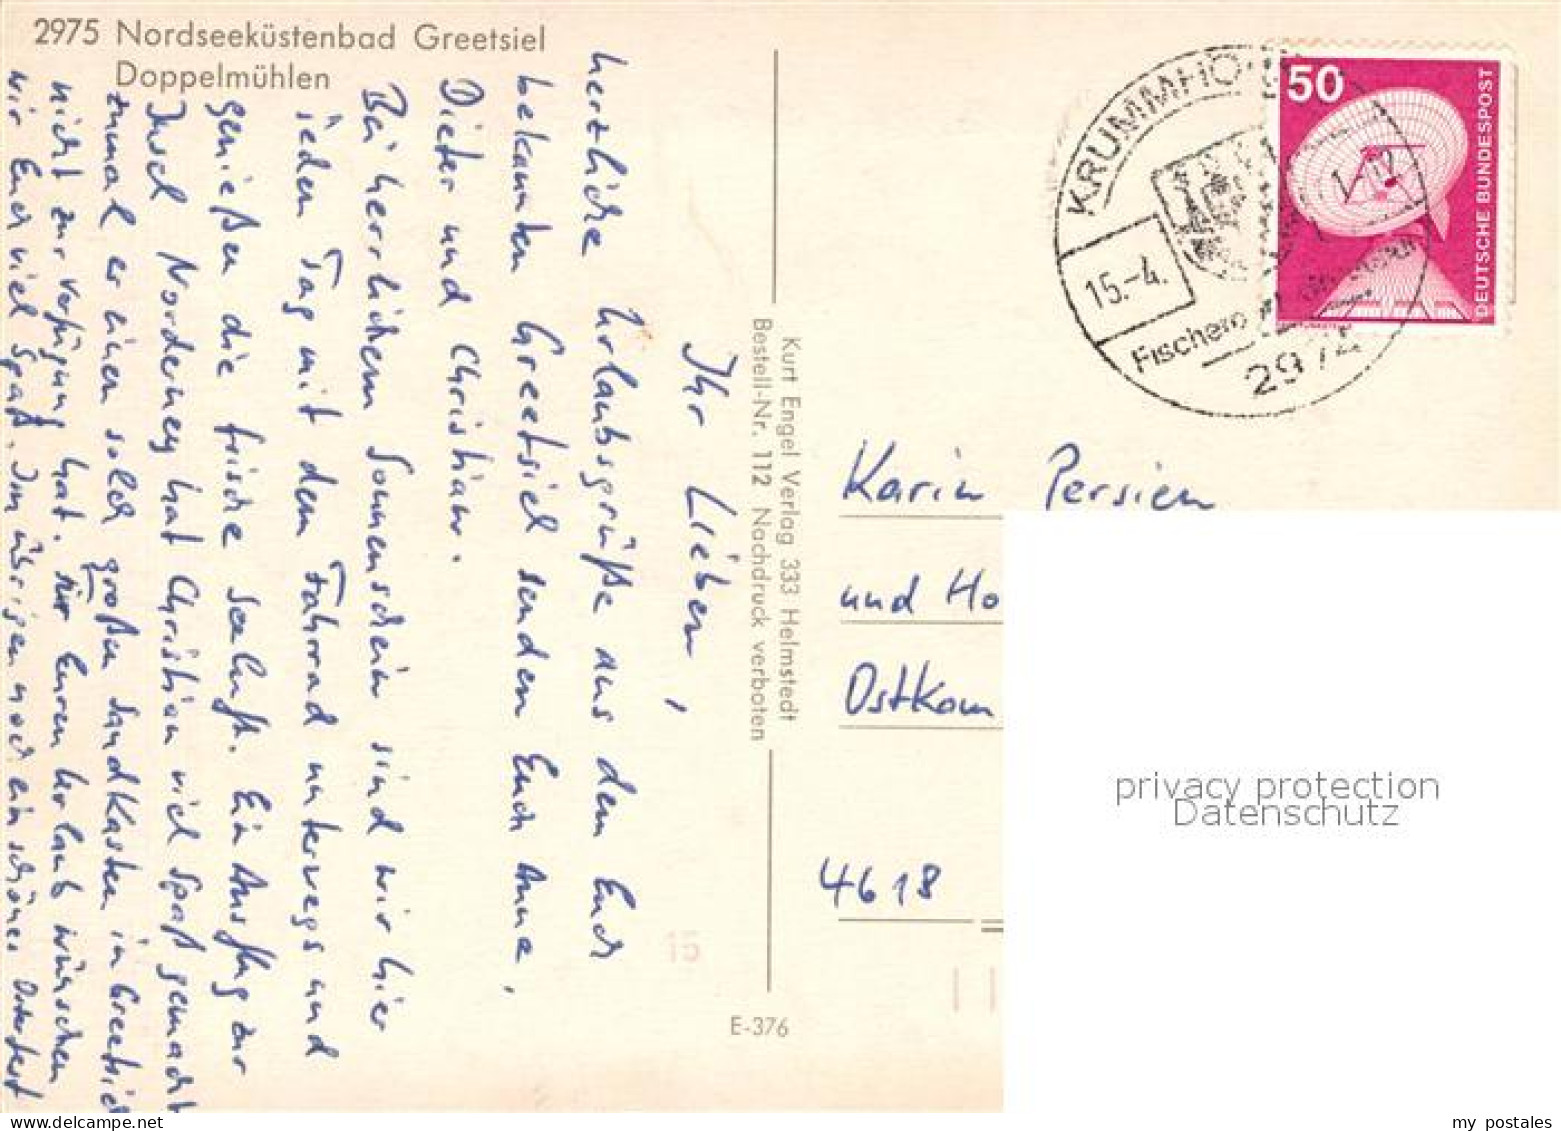 2975 Nordseeküstenbad Greetsiel
Doppelmühlen
Ihr Lieben,
herzliche Urlaubsgrüße aus dem Euch
bekannten Greetsiel senden Euch Anne,
Dieter und Christian.
Bei herrlichem Sonnenschein sind wir hier
jeden Tag mit dem Fahrrad unterwegs und
genießen die frische Seeluft. Ein Ausflug zur
Insel Norderney hat Christian viel Spaß gemacht
zumal er einen solch großen Sandkasten in Greetsiel
nicht zur Verfügung hat. Für Euren Urlaub wünschen
wir Euch viel Spaß. Im übrigen noch ein schönes Osterfest
Kurt Engel Verlag 333 Helmstedt
Bestell-Nr. 112 Nachdruck verboten
E-376
15
KRUMMHÖ
15.-4.
Fischerei
2974
50
DEUTSCHE BUNDESPOST
Karin Persien
und Ho
Ostkam
4618
privacy protection
Datenschutz
my postales